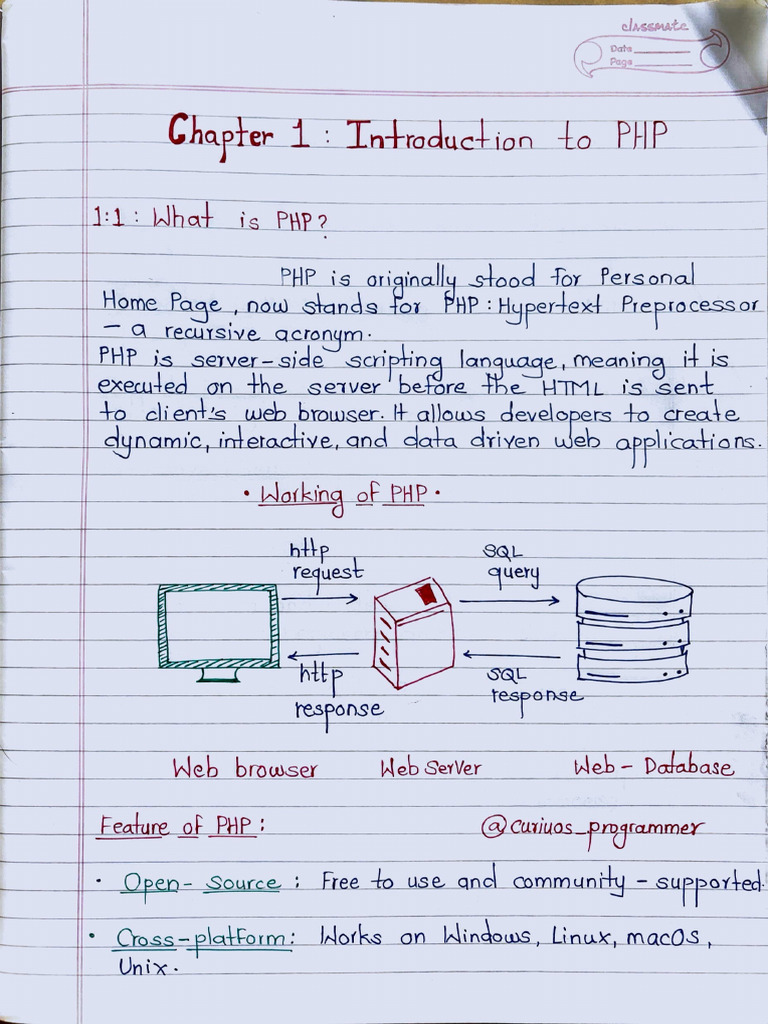 classmate
Date
Page
Chapter 1 : Introduction to PHP
1:1 : What is PHP?
PHP is originally stood for Personal
Home Page, now stands for PHP : Hypertext Preprocessor
– a recursive acronym.
PHP is server-side scripting language, meaning it is
executed on the server before the HTML is sent
to client's web browser. It allows developers to create
dynamic, interactive, and data driven web applications.
• Working of PHP •
http
request
SQL
query
http
response
SQL
response
Web browser
Web Server
Web - Database
Feature of PHP :
@curiuos_programmer
• Open - Source : Free to use and community - supported.
• Cross-platform : Works on Windows, Linux, macOS,
Unix.